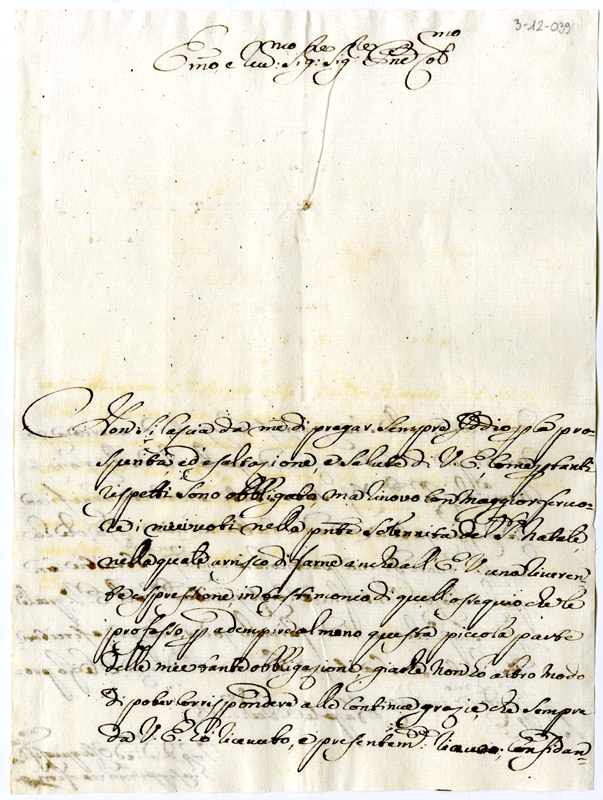 3-12-039
Em̃o, e Reu:mo Sig:re Sig:re P̃ne Col:mo
Non si lascia da me di pregar sempre Iddio p la pro-
sperità ed esaltazione, e salute di V. E. come p tanti
rispetti sono obbligato, ma rinovo con maggior feruo-
re i miei uoti nella pñte solennità del S:mo natale,
nella quale ardisco di farne anche all'E. V. una riueren-
te espressione, in testimonio di quell'ossequio che le
professo, p adempire almeno questa piccola parte
delle mie tante obbligazione, giache non hò altro modo
di poter corrispondere alle continue grazie, che sempre
da V. E. hò riceuuto, e presentem:te riceuo; confidan-